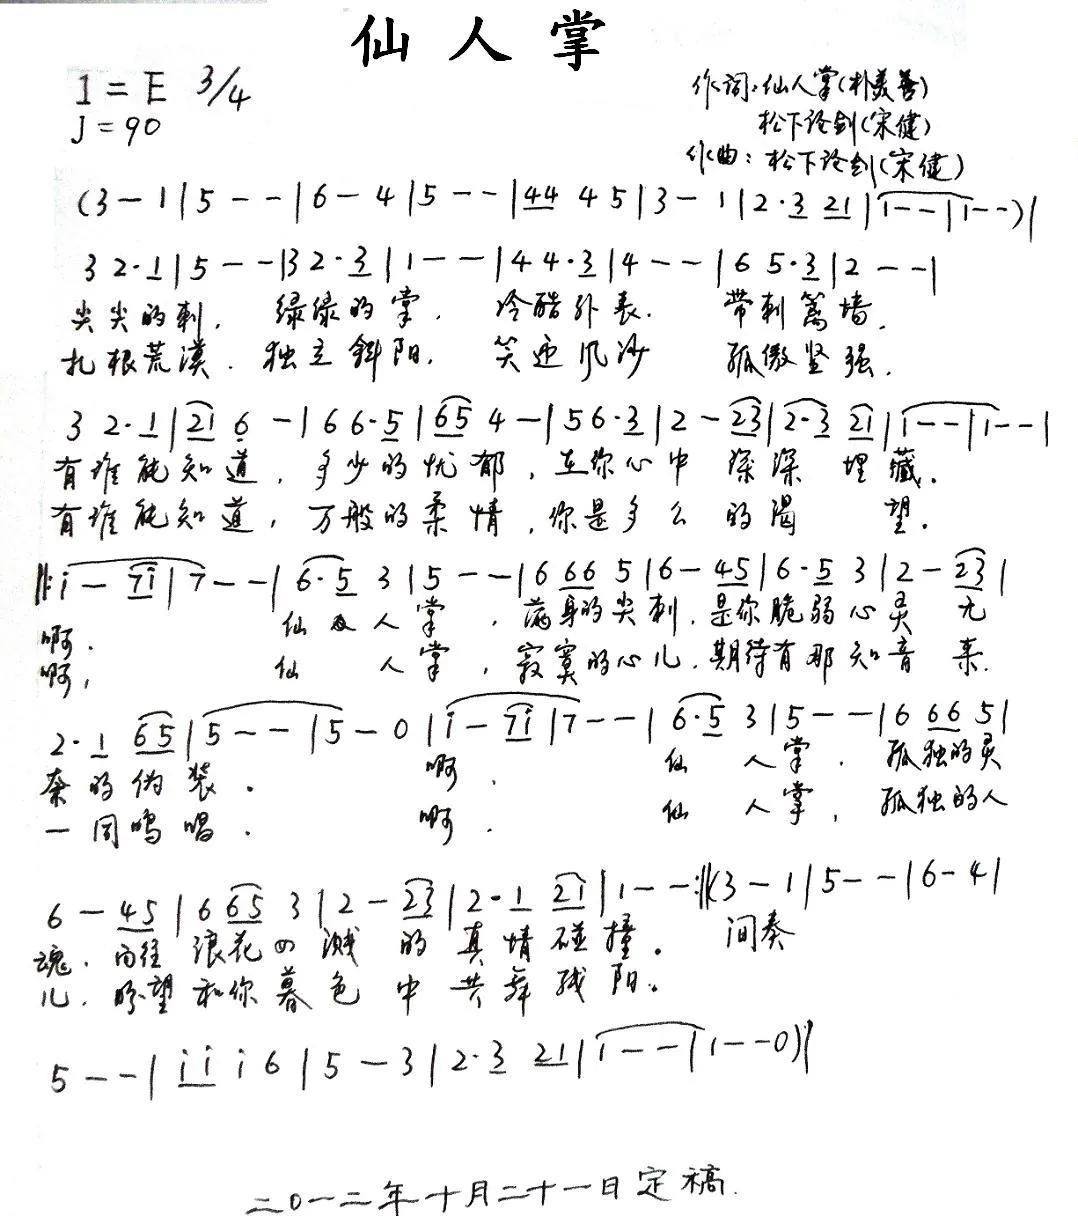 仙人掌
1=E 3/4
♩=90
作词:仙人掌(朴美善)
松下论剑(宋健)
作曲:松下论剑(宋健)
(3 - 1 | 5 - - | 6 - 4 | 5 - - | 44 4 5 | 3 - 1 | 2·3 21 | 1 - - | 1 - - ) |
3 2·1 | 5 - - | 3 2·3 | 1 - - | 4 4·3 | 4 - - | 6 5·3 | 2 - - |
尖尖的刺, 绿绿的掌, 冷酷外表. 带刺篱墙,
扎根荒漠. 独立斜阳, 笑迎风沙 孤傲坚强.
3 2·1 | 21 6̣ - | 6 6·5 | 65 4 - | 5 6·3 | 2 - 23 | 2·3 21 | 1 - - | 1 - - |
有谁能知道, 多少的忧郁, 在你心中 深深 埋藏.
有谁能知道, 万般的柔情, 你是多么 的渴 望.
‖: i - 7i | 7 - - | 6·5 3 | 5 - - | 6 66 5 | 6 - 45 | 6·5 3 | 2 - 23 |
啊. 仙 人掌, 满身的尖刺, 是你脆弱心灵 无
啊, 仙 人掌, 寂寞的心儿, 期待有那知音 来.
2·1 65 | 5 - - | 5 - 0 | i - 7i | 7 - - | 6·5 3 | 5 - - | 6 66 5 |
奈的伪装. 啊. 仙 人掌, 孤独的灵
一同鸣唱. 啊. 仙 人掌, 孤独的人
6 - 45 | 6 65 3 | 2 - 23 | 2·1 21 | 1 - - :‖ (3 - 1 | 5 - - | 6 - 4 |
魂. 向往 浪花四溅 的真情碰撞. 间奏
儿. 盼望和你暮色 中共舞残阳.
5 - - | i i i 6 | 5 - 3 | 2·3 21 | 1 - - | 1 - - 0) |
二〇一二年十月二十一日定稿.